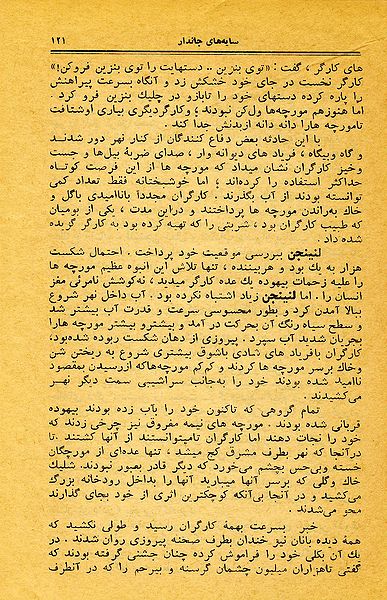 سایه‌های جاندار ۱۲۱
های کارگر ، گفت : «توی بنزین .. دستهایت را توی بنزین فروکن!»
کارگر نخست در جای خود خشکش زد و آنگاه بسرعت پیراهنش
را پاره کرده دستهای خود را تابازو در چلیك بنزین فرو کرد .
اما هنوزهم مورچه‌ها ول‌کن نبودند ؛ وکارگردیگری بیاری اوشتافت
تامورچه هارا دانه دانه ازبدنش جدا کند .
با این حادثه بعض دفاع کنندگان از کنار نهر دور شدند
و گاه وبیگاه ، فریاد های دیوانه وار ، صدای ضربهٔ بیل‌ها و جست
وخیز کارگران نشان میداد که مورچه ها از این فرصت کوتاه
حداکثر استفاده را کرده‌اند ؛ اما خوشبختانه فقط تعداد کمی
توانسته بودند از آب بگذرند . کارگران مجدداً باناامیدی باگل و
خاك به‌راندن مورچه ها پرداختند و دراین مدت ، یکی از بومیان
که طبیب کارگران بود ، شربتی را که تهیه کرده بود به کارگر گزیده
شده داد .
لنینجن ببررسی موقعیت خود پرداخت . احتمال شکست
هزار به یك بود و هربیننده ، تنها تلاش این انبوه عظیم مورچه ها
را علیه زحمات بیهوده یك عده کارگر میدید ، نه‌کوشش نامرئی مغز
انسان را . اما لنینجن زیاد اشتباه نکرده بود . آب داخل نهر شروع
ببالا آمدن کرد و بطور محسوسی سرعت و قدرت آب بیشتر شد
و سطح سیاه رنگ آن بحرکت در آمد و بیشترو بیشتر مورچه هارا
بجریان شدید آب سپرد . پیروزی از دهان شکست ربوده شده‌بود،
کارگران بافریاد های شادی باشوق بیشتری شروع به ریختن شن
وخاك برسر مورچه ها کردند و کم‌کم مورچه‌هاکه ازرسیدن بمقصود
ناامید شده بودند خود را به‌جانب سراشیبی سمت دیگر نهر
می‌کشیدند .
تمام گروهی که تاکنون خود را بآب زده بودند بیهوده
قربانی شده بودند . مورچه های نیمه مفروق نیز چرخی زدند که
خود را نجات دهند اما کارگران نامیتوانستند از آنها کشتند .تا
درآنجا که نهر بطرف مشرق کج میشد ، تنها عده‌ای از مورچگان
خسته وبی‌حس بچشم می‌خورد که دیگر قادر بعبور نبودند. شلیك
خاك وگلی که برسر آنها میبارید آنها را بداخل رودخانه بزرگ
می‌کشید و در آنجا بی‌آنکه کوچکترین اثری از خود بجای گذارند
محو می‌شدند .
خبر بسرعت بهمهٔ کارگران رسید و طولی نکشید که
همهٔ دیده بانان نیز خندان بطرف صحنه پیروزی روان شدند . در
یك آن بکلی خود را فراموش کرده چنان جشنی گرفته بودند که
گفتی تاهزاران میلیون چشمان گرسنه و بیرحم را که در آنطرف